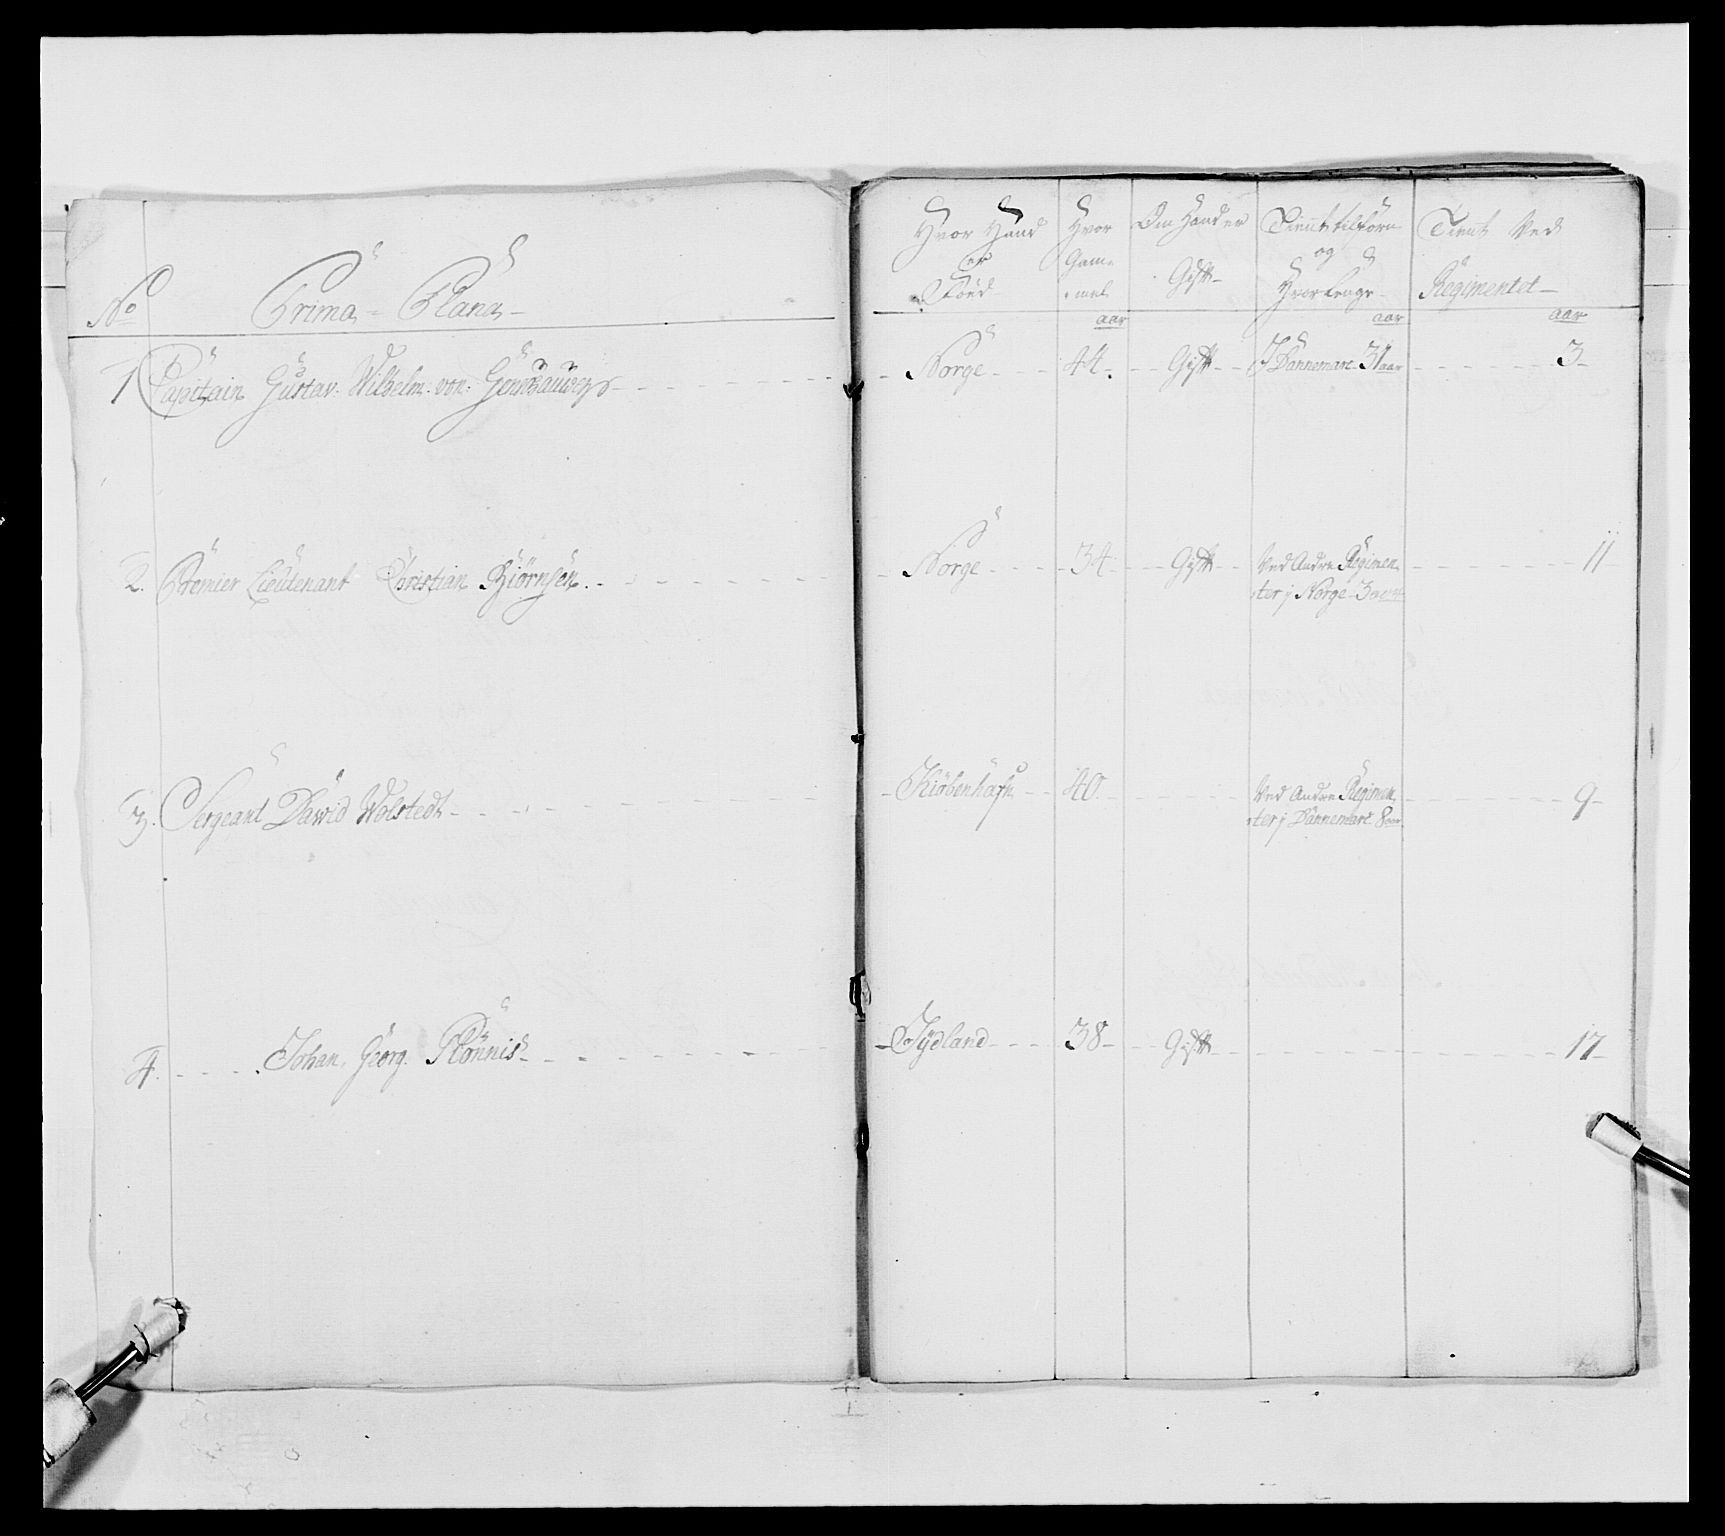 No Prima - Plana -
Hvor Hand er Föed
Hvor Gam= mel aar
Om Hand er Gift
Tient tilforn og Hvor lenge aar
Tient Ved Regimentet aar
1 Capitain Gustav Wilhelm von Norge 44 Gift J Dannemarc 31 aar 3
2. Premier Lieutenant Christian Biörnsen Norge 34 Gift Ved Andre Regimen
ter j Norge 3 aar 11
3. Sergeant Dawid Wolstedt Kiöbenhafn 40 Ved Andre Regimen
ter j Dannemarc 8 aar 9
4. Johan Georg Plönnis Jydland 38 Gift 17